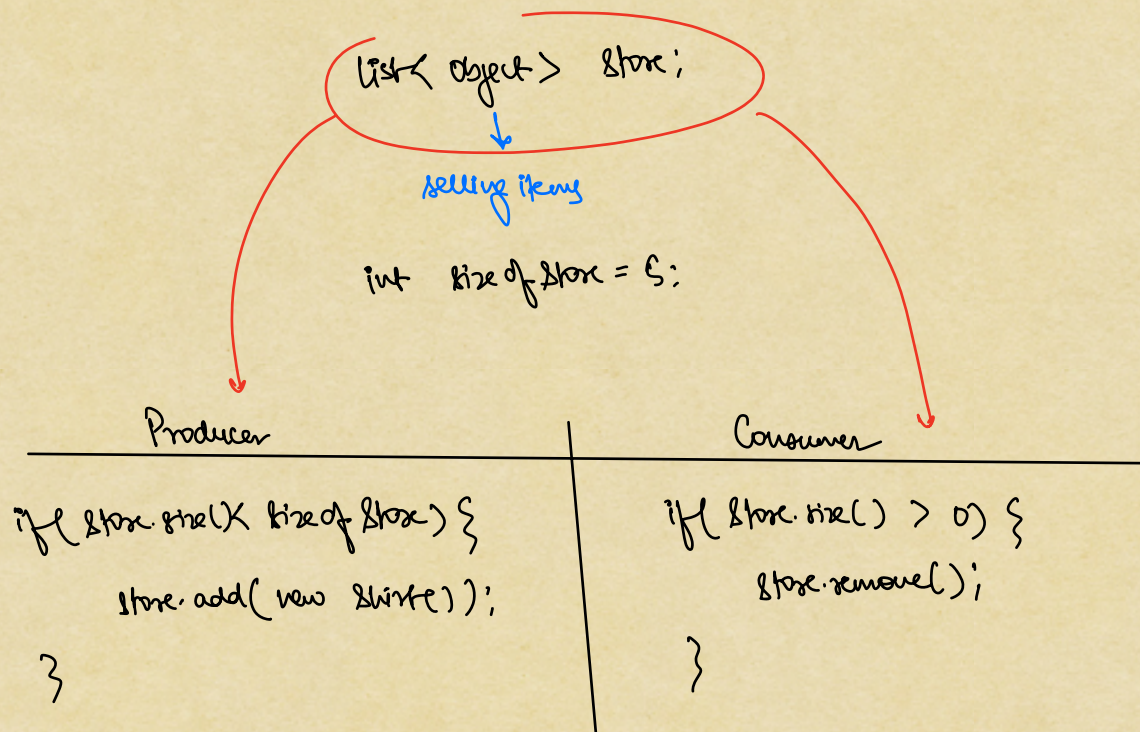 List< Object > Store;
selling items
int sizeofStore = 5;
Producer
Consumer
if( Store.size()< SizeofStore) {
store.add( new Shirt());
}
if( Store.size() > 0) {
Store.remove();
}